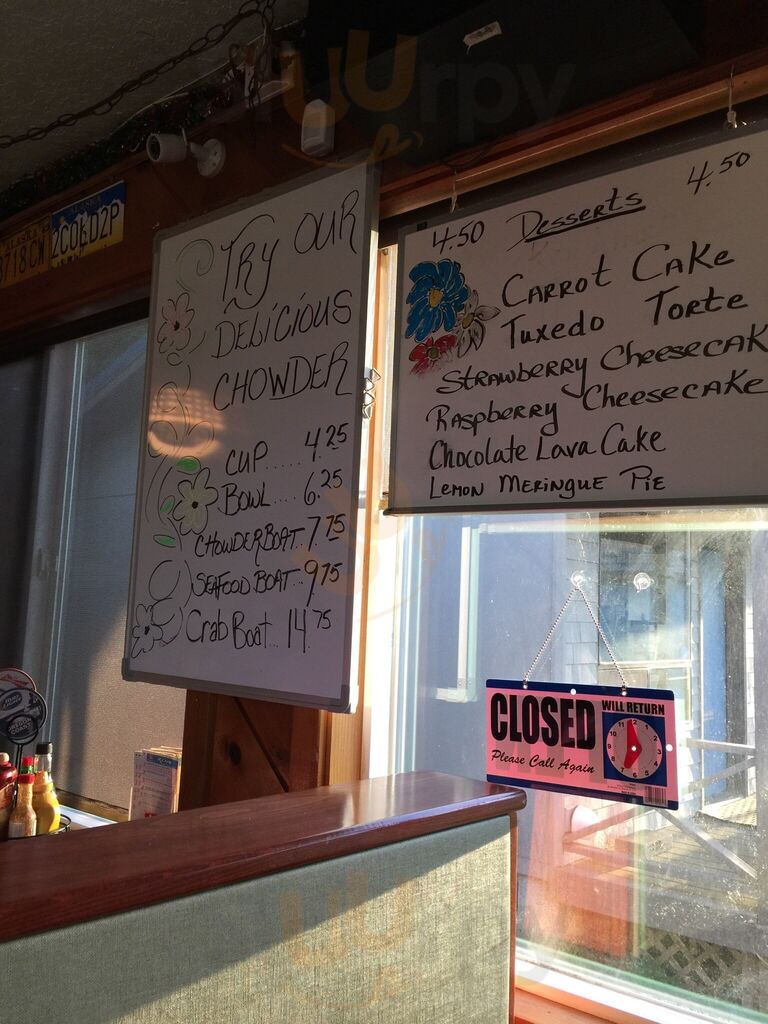 TRY OUR
DELICIOUS
CHOWDER
CUP..... 4.25
BOWL... 6.25
CHOWDERBOAT.. 7.75
SEAFOOD BOAT... 9.75
Crab Boat... 14.75
4.50 Desserts 4.50
CARROT CAKE
Tuxedo Torte
STRAWBERRY CHEESECAK
RASPBERRY CHEESECAKE
Chocolate Lava Cake
LEMON MERINGUE PIE
ALASKA
3718CW
2COED2P
CLOSED
Please Call Again
WILL RETURN